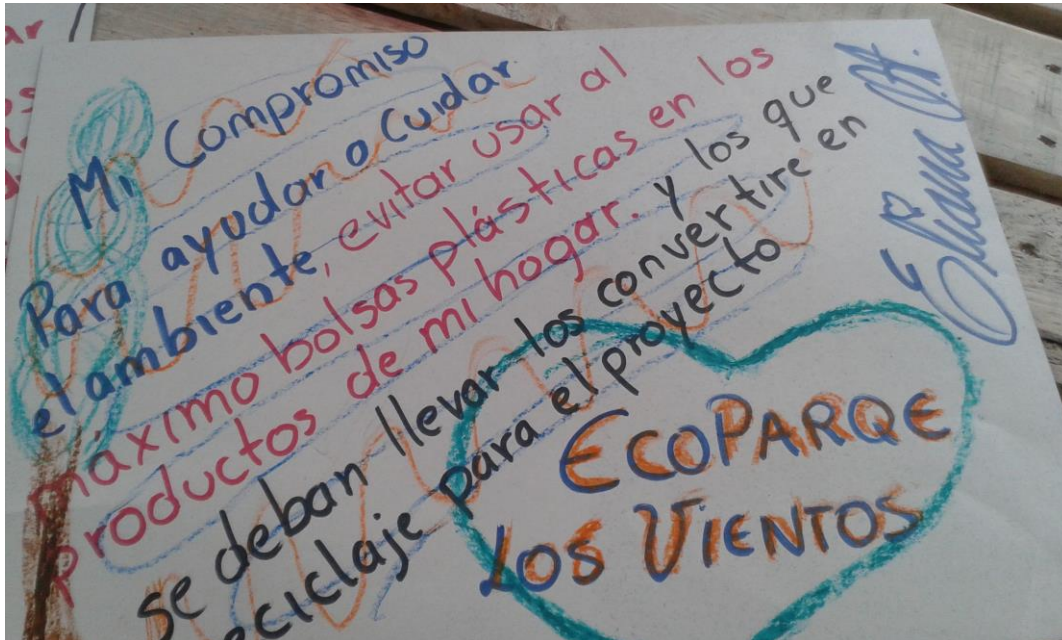 Mi Compromiso
Para ayudar a Cuidar
el ambiente, evitar usar al
maximo bolsas plásticas en los
productos de mi hogar. y los que
se deban llevar los convertire en
reciclaje para el proyecto
ECOPARQE
LOS VIENTOS
Eliana